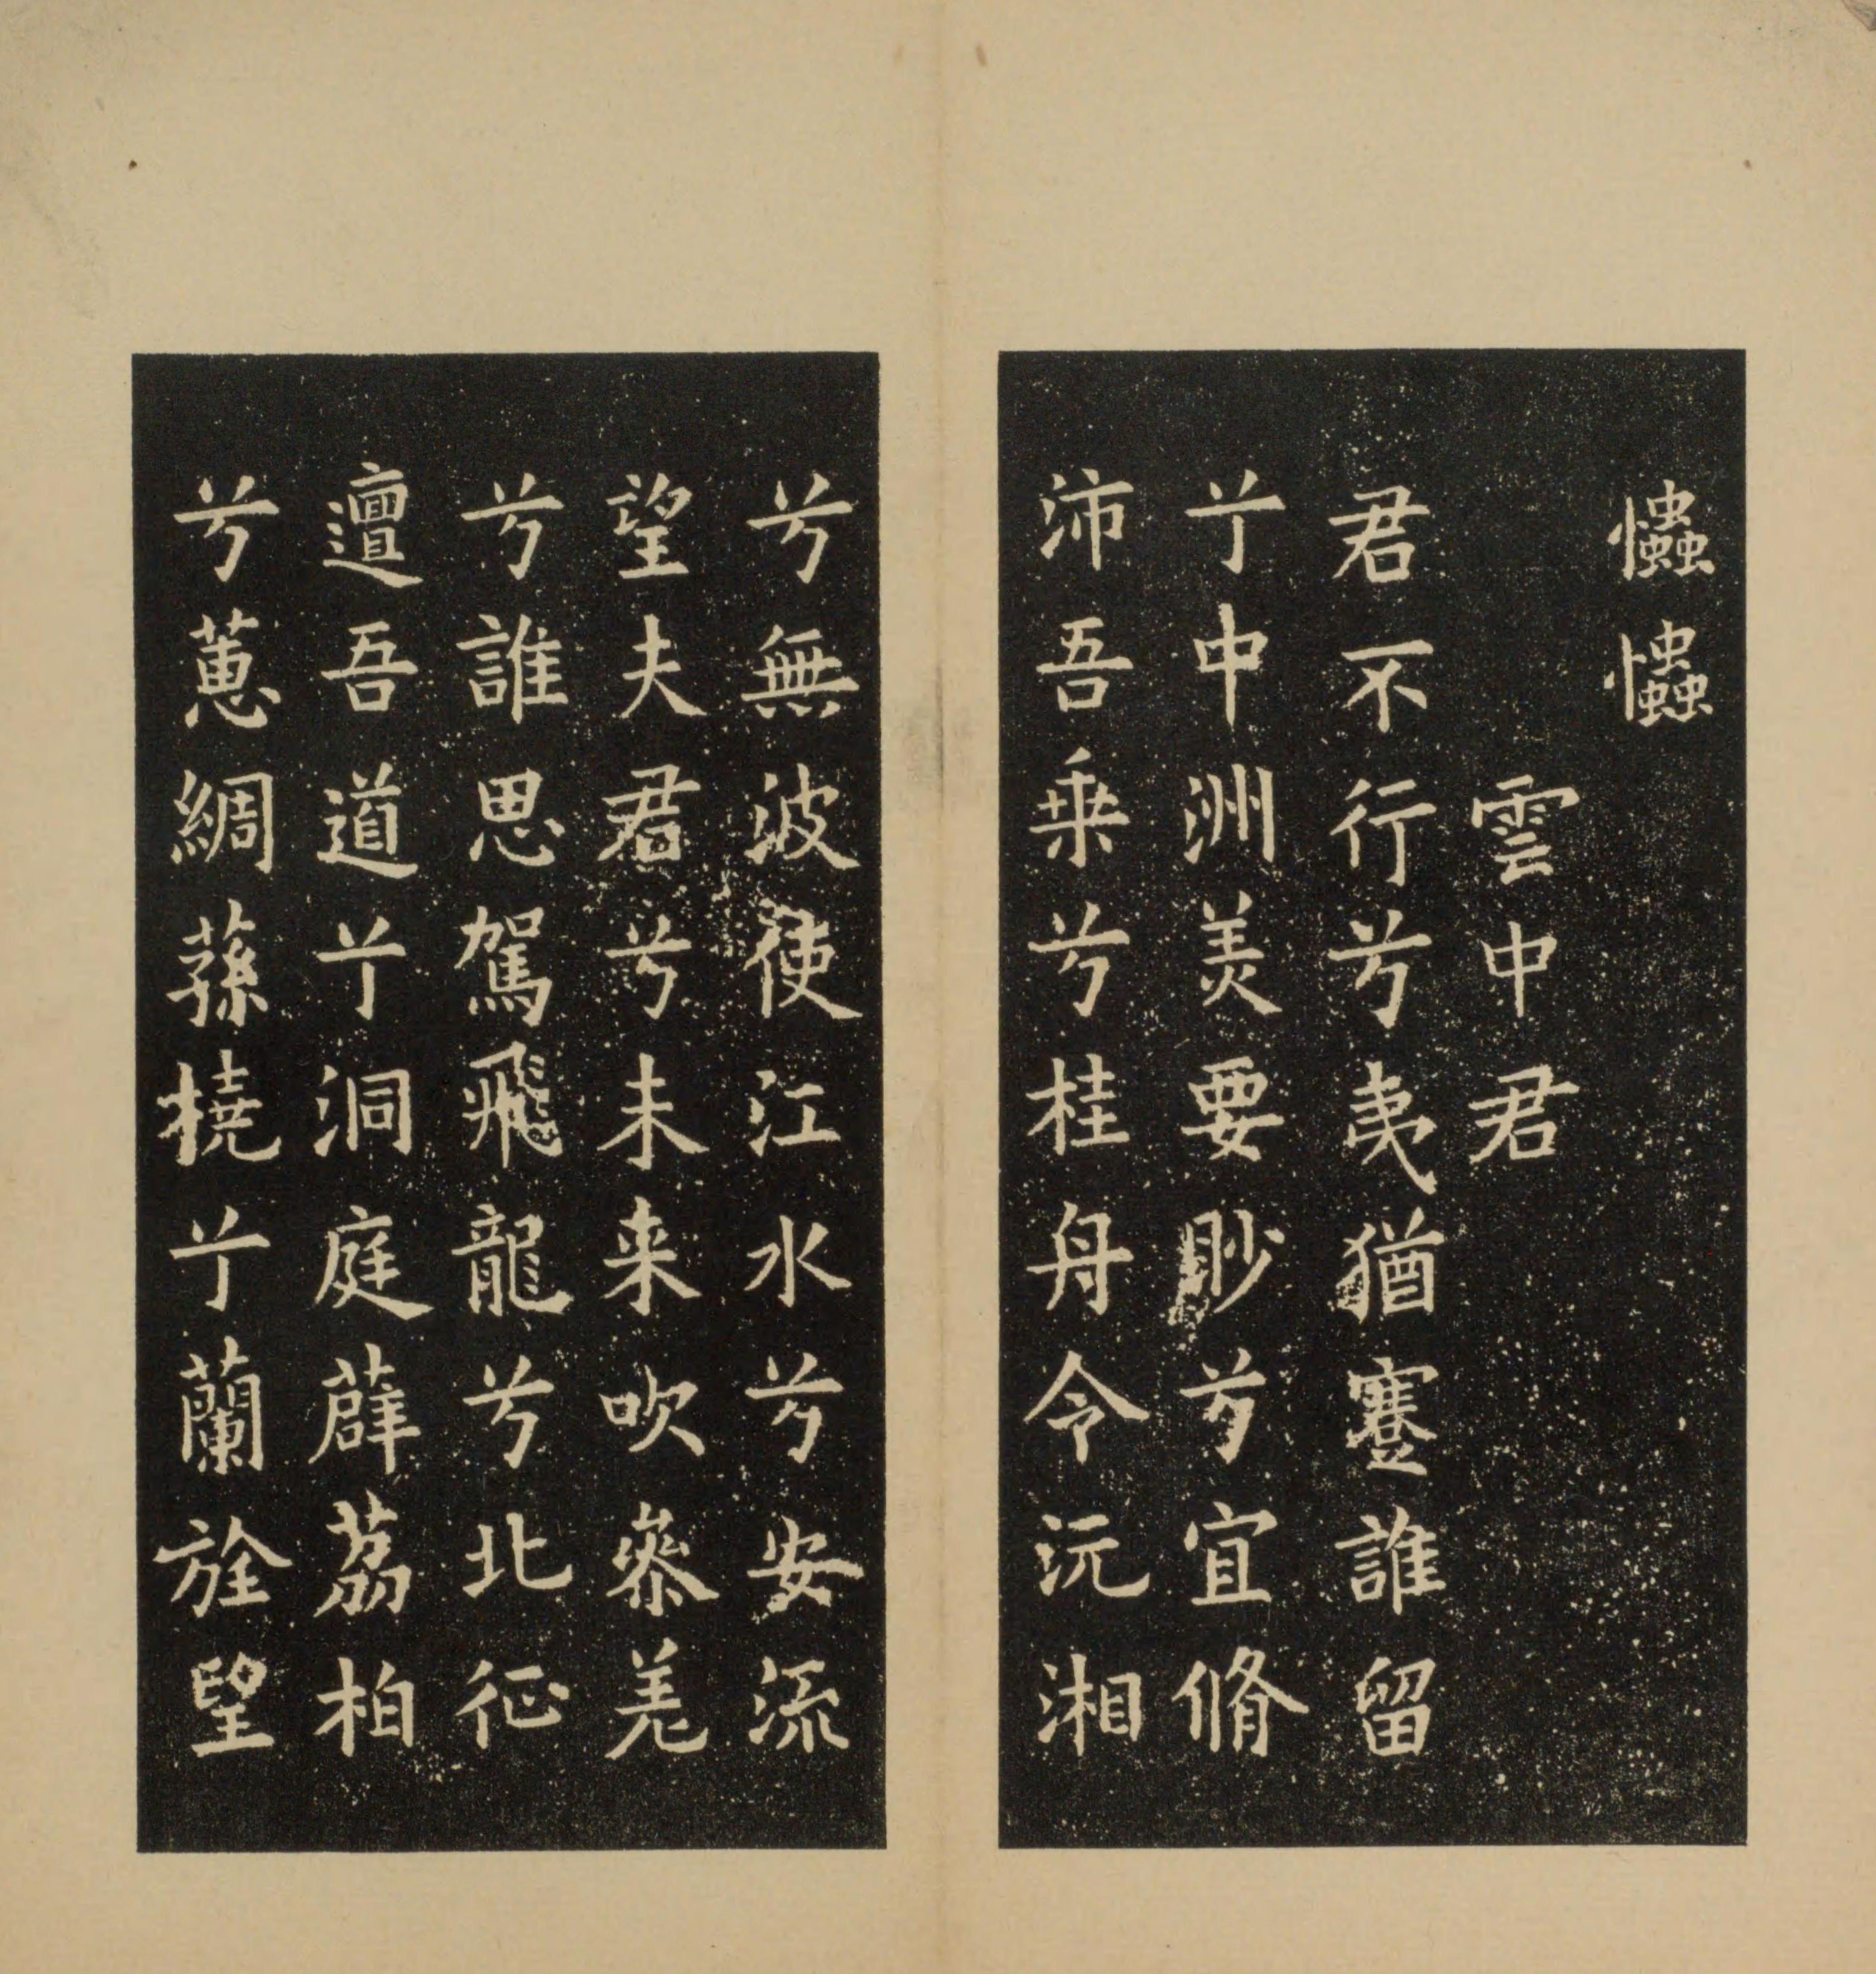 𢥞𢥞
雲中君
君不行兮夷猶蹇誰留
兮中洲美要眇兮宜脩
沛吾乗兮桂舟令沅湘
兮無波使江水兮安流
望夫君兮未来吹參差
兮誰思駕飛龍兮北征
邅吾道兮洞庭薜荔柏
兮蕙綢蓀橈兮蘭旌望